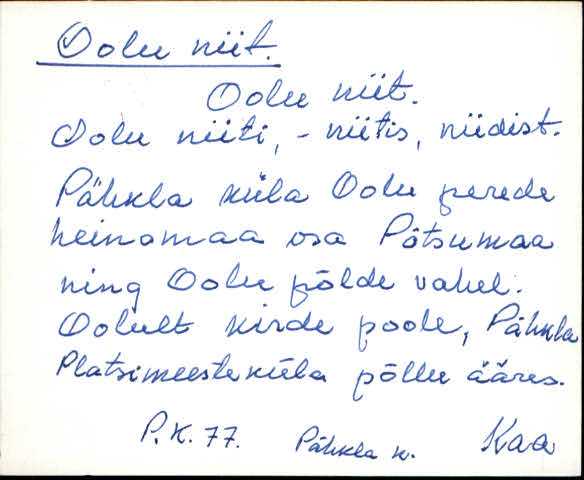 Oolu niit.
Oolu niit.
Oolu niiti, - niitis, niidist.
Pähkla küla Oolu perede
heinamaa osa Pätsumaa
ning Oolu põlde vahel.
Oolult kirde poole, Pähkla
Platsimeesteküla põllu ääres.
P.K. 77. Pähkla k. Kaa